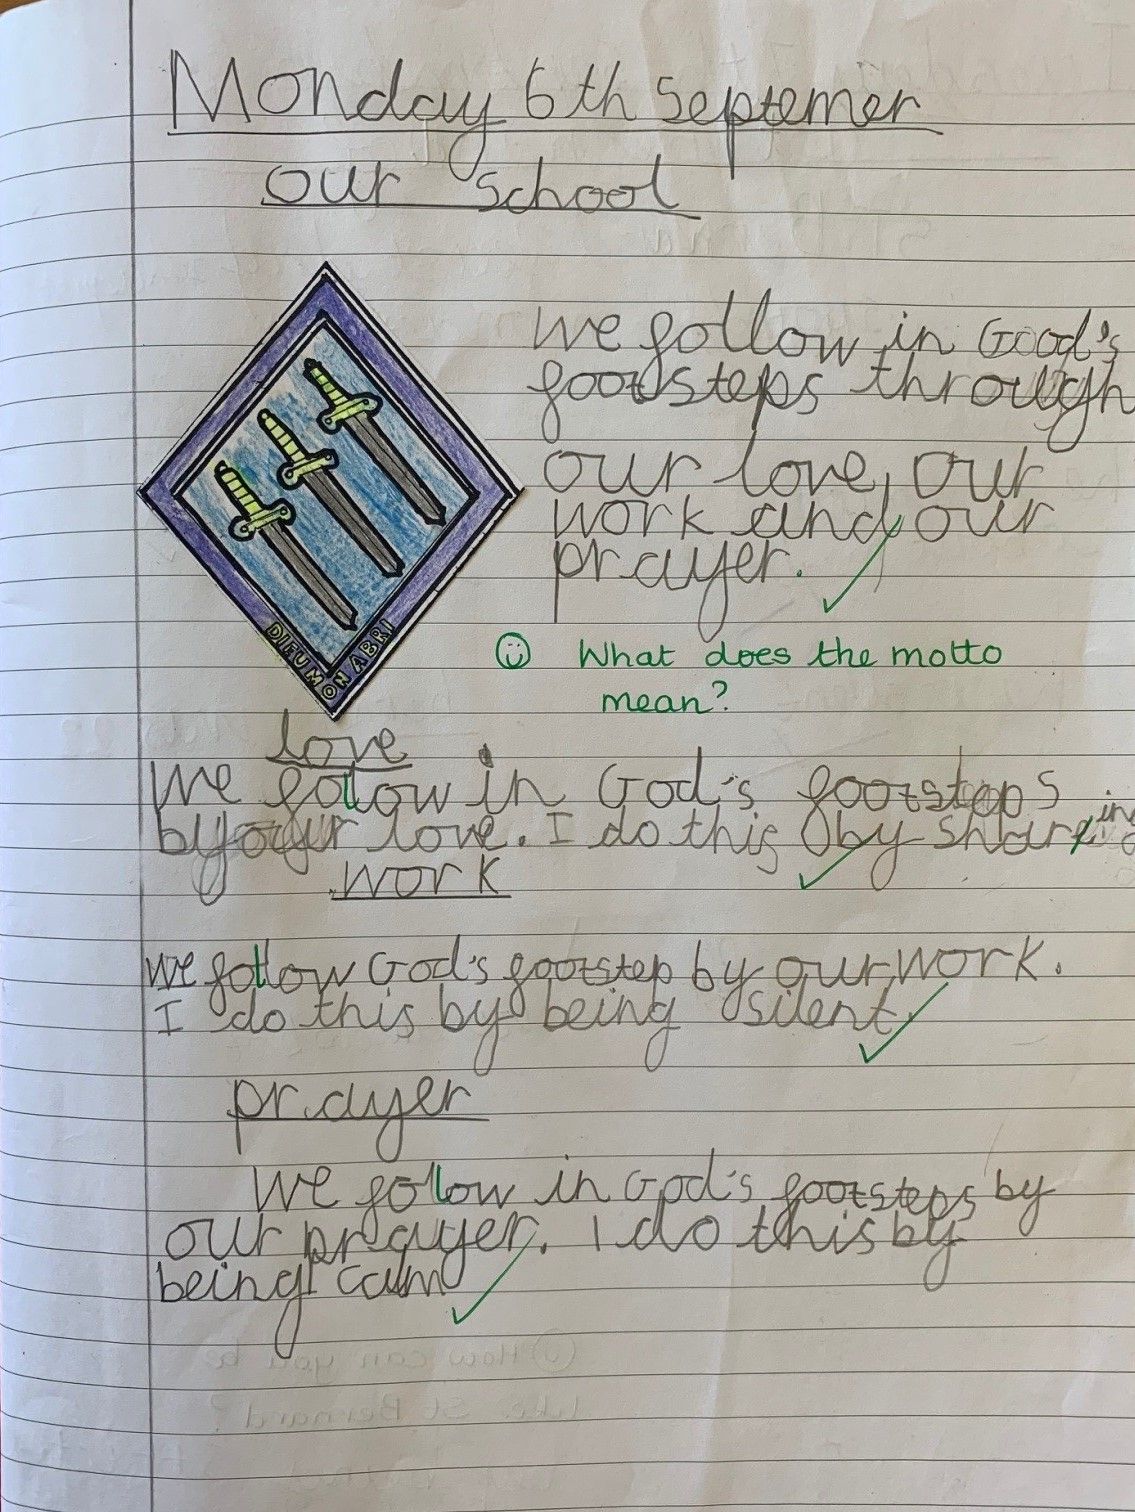 Monday 6th Septemer
our school
we follow in Good's
footsteps through
our love, our
work and our
prayer.
DIEU MON ABRI
☺ What does the motto
mean?
love
We follow in God's footsteps
by our love. I do this by sharing
work
We follow God's footstep by our work.
I do this by being silent.
prayer
We follow in God's footsteps by
our prayer. I do this by
being calm